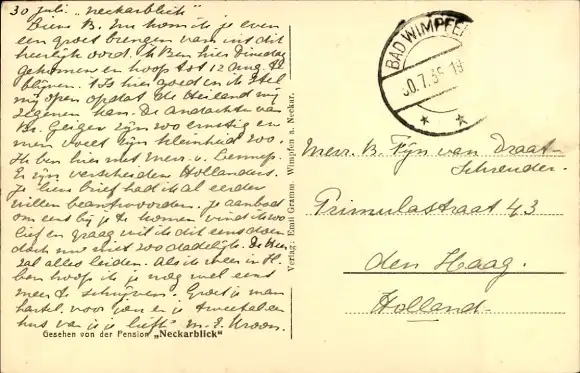 30 Juli „Neckarblick"
Lieve B. Nu kom ik je even
een groet brengen van uit dit
heerlijk oord. Ik Ben hier Dinsdag
gekomen en hoop tot 12 Aug. te
blijven. 't Is hier goed en ik stel
mij open opdat de Heiland mij
zegenen kan. De Andachten van
Br. Geiger zijn zoo ernstig en
men voelt zijn kleinheid zoo.
Ik ben hier met Mevr. v. Lennep.
Er zijn verscheiden Hollanders.
Je lieve brief had ik al eerder
willen beantwoorden. Je aanbod
om eens bij je te komen vind ik zoo
lief en graag wil ik dit eens doen
doch nu niet zoo dadelijk. De Heer
zal alles leiden. Als ik weer in H.
ben hoop ik je nog wel eens
meer te schrijven. Groet je man
hartel. voor jou en je tweetal een
kus van je je liefh. M. E. Kroon.
Gesehen von der Pension „Neckarblick"
Verlag: Emil Gramm, Wimpfen a. Neckar.
BAD WIMPFEN
30.7.35 19
Mevr. B. Fijn van Draat-
Schreuder.
Primulastraat 43
den Haag.
Holland.